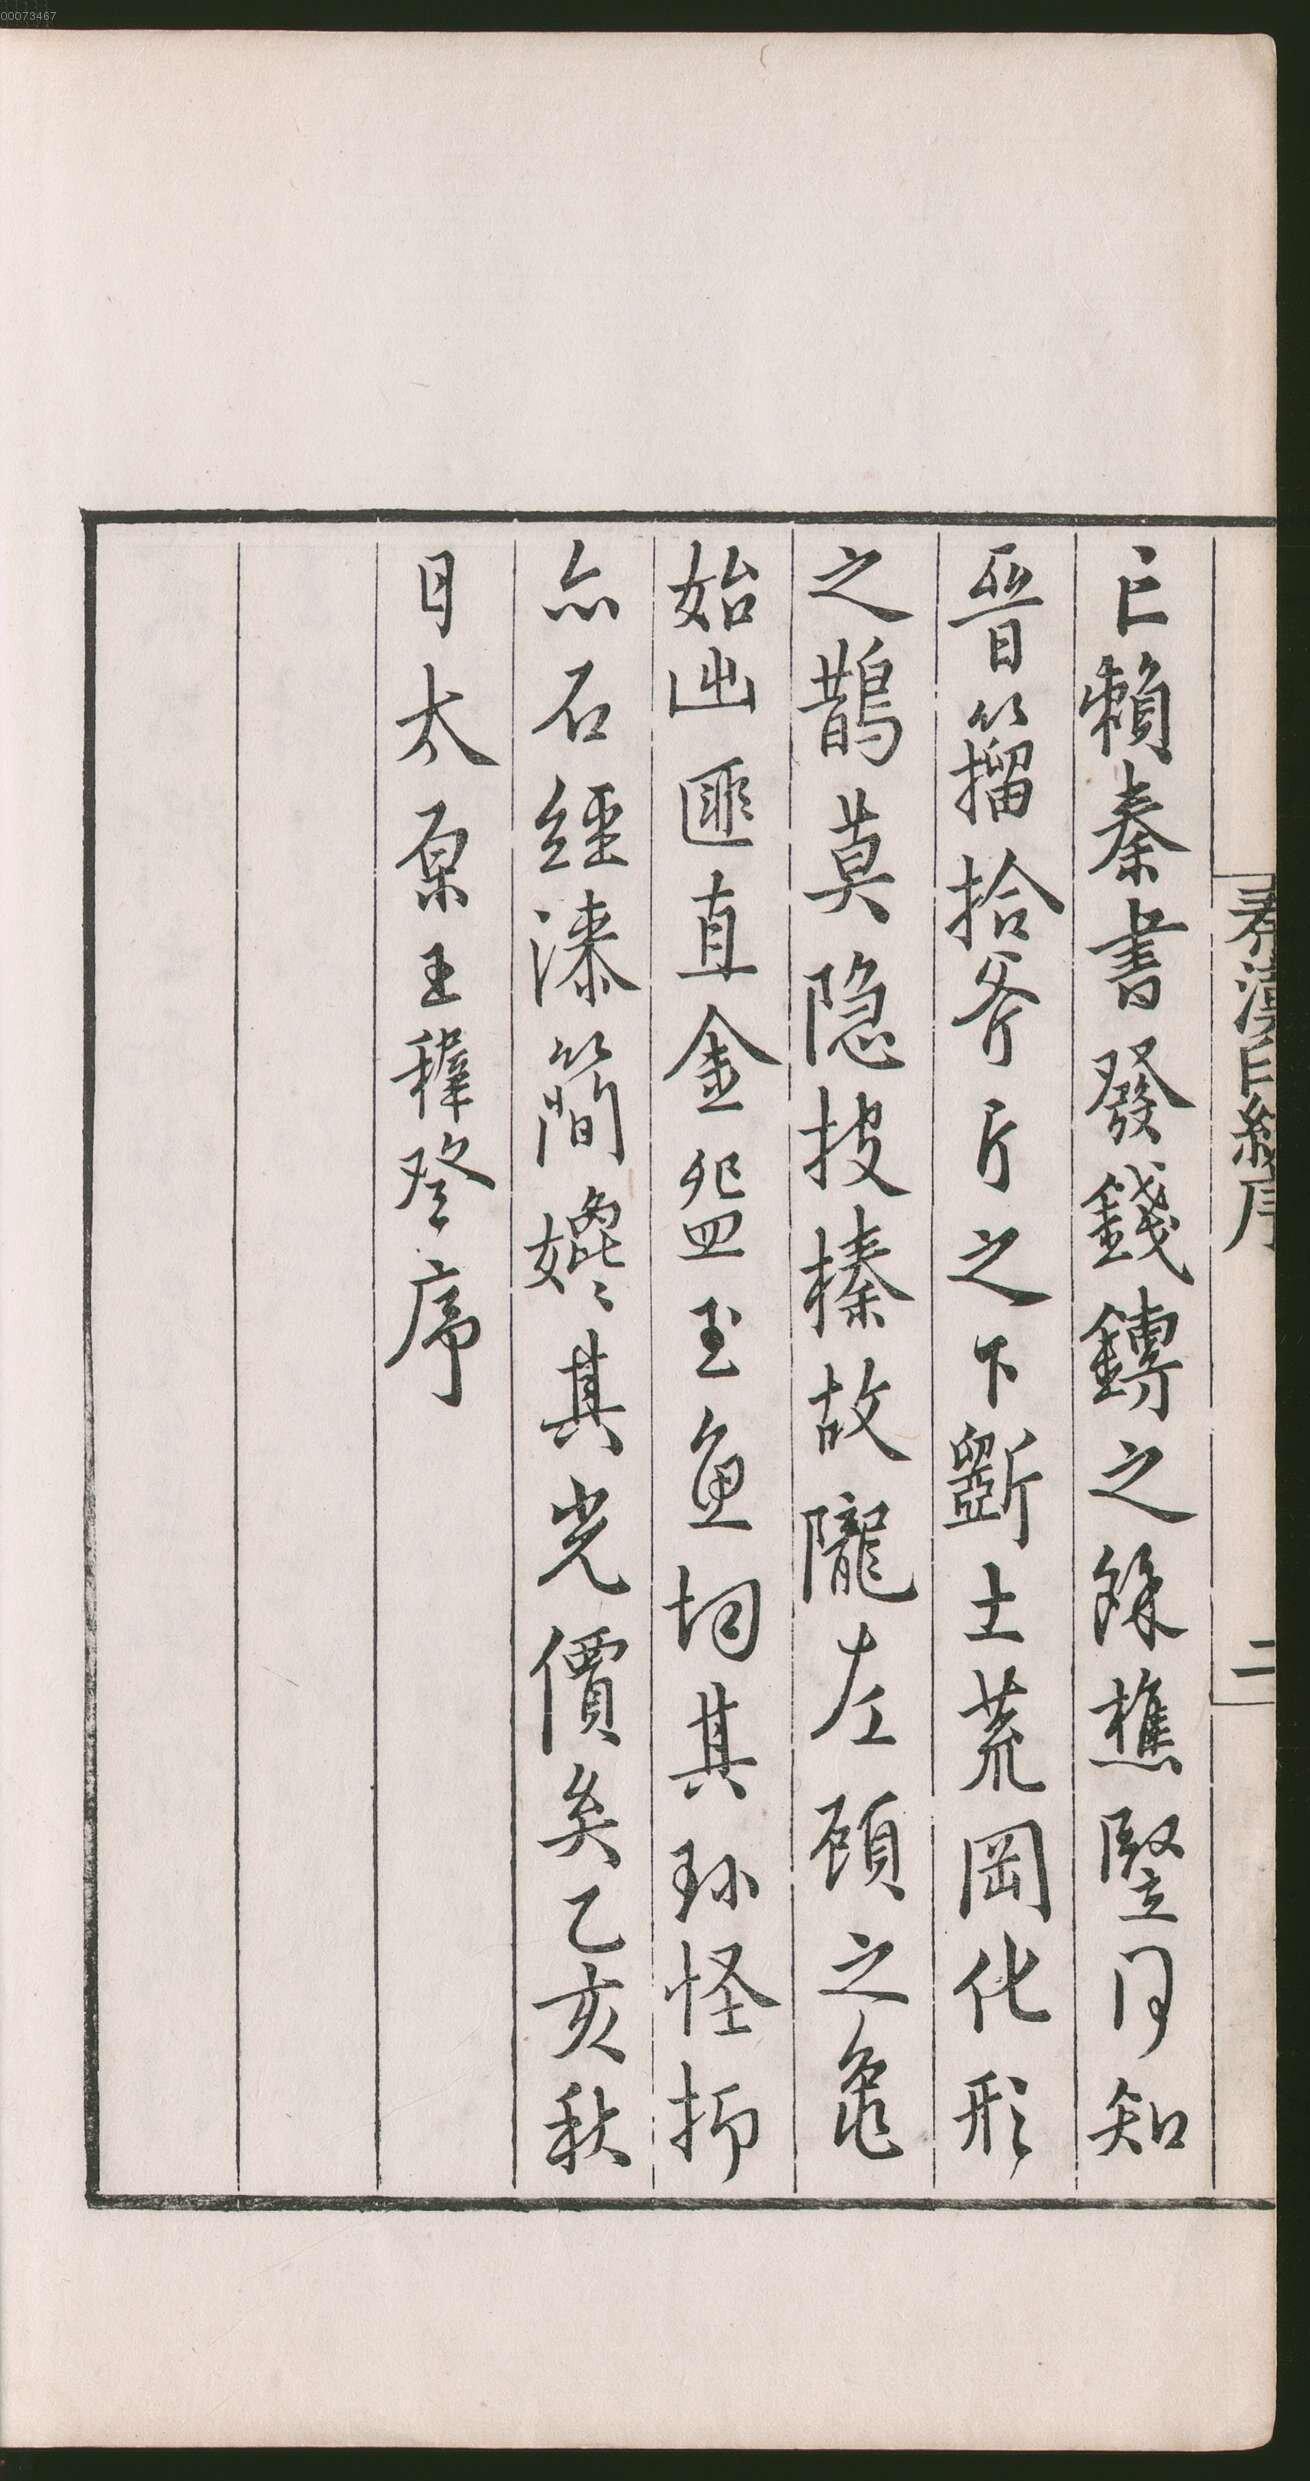 亡賴秦書發錢鎛之餘樵豎同知
晉籀拾斧斤之下斸土荒岡化形
之鵲莫隐披榛故隴左顧之龜
始出匪直金盌玉魚均其珎怪抑
亦石經漆簡媲〻其光價矣乙亥秋
日太原王穉登序
秦漢印統序
二
00073467